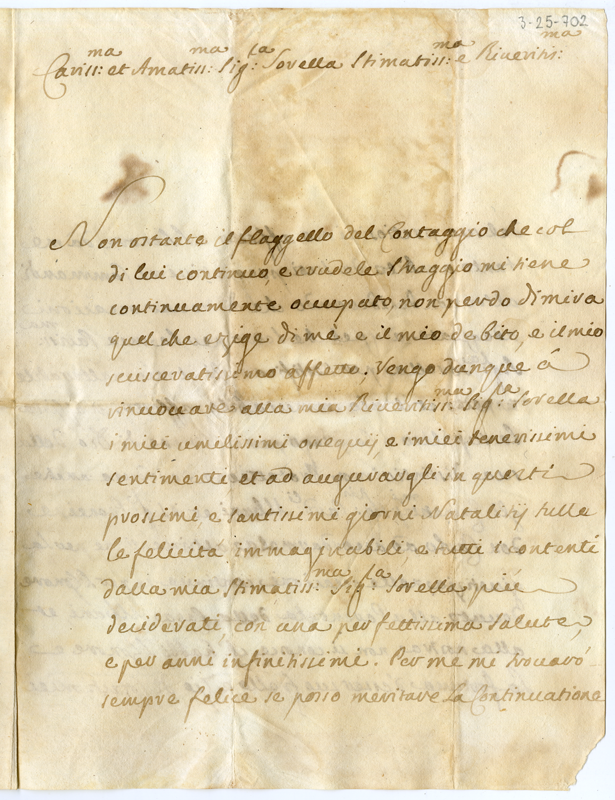 3-25-702
Cariss:ma et Amatiss:ma Sig:ra Sorella Stimatiss:ma e Riveritis:ma
Non ostante il flaggello del Contaggio che col
di lui continuo, e crudele straggio mi tiene
continuamente occupato, non perdo di mira
quel che ezige di mè e il mio debito, e il mio
sviscevatissimo affetto; Vengo dunque á
rinuovare alla mia Riveritiss:ma Sig:ra Sorella
i miei umilissimi ossequij, e i miei tenerissimi
sentimenti et ad auguraugli in questi
prossimi, e santissimi giorni Natalitij tutte
le felicitá immaginabili, e tutti i contenti
dalla mia Stimatiss:ma Sig:ra Sorella piú
deciderati con una perfettissima salute,
e per anni infinitissimi. Per me mi trovaró
sempre felice se posso meritare la Continuatione